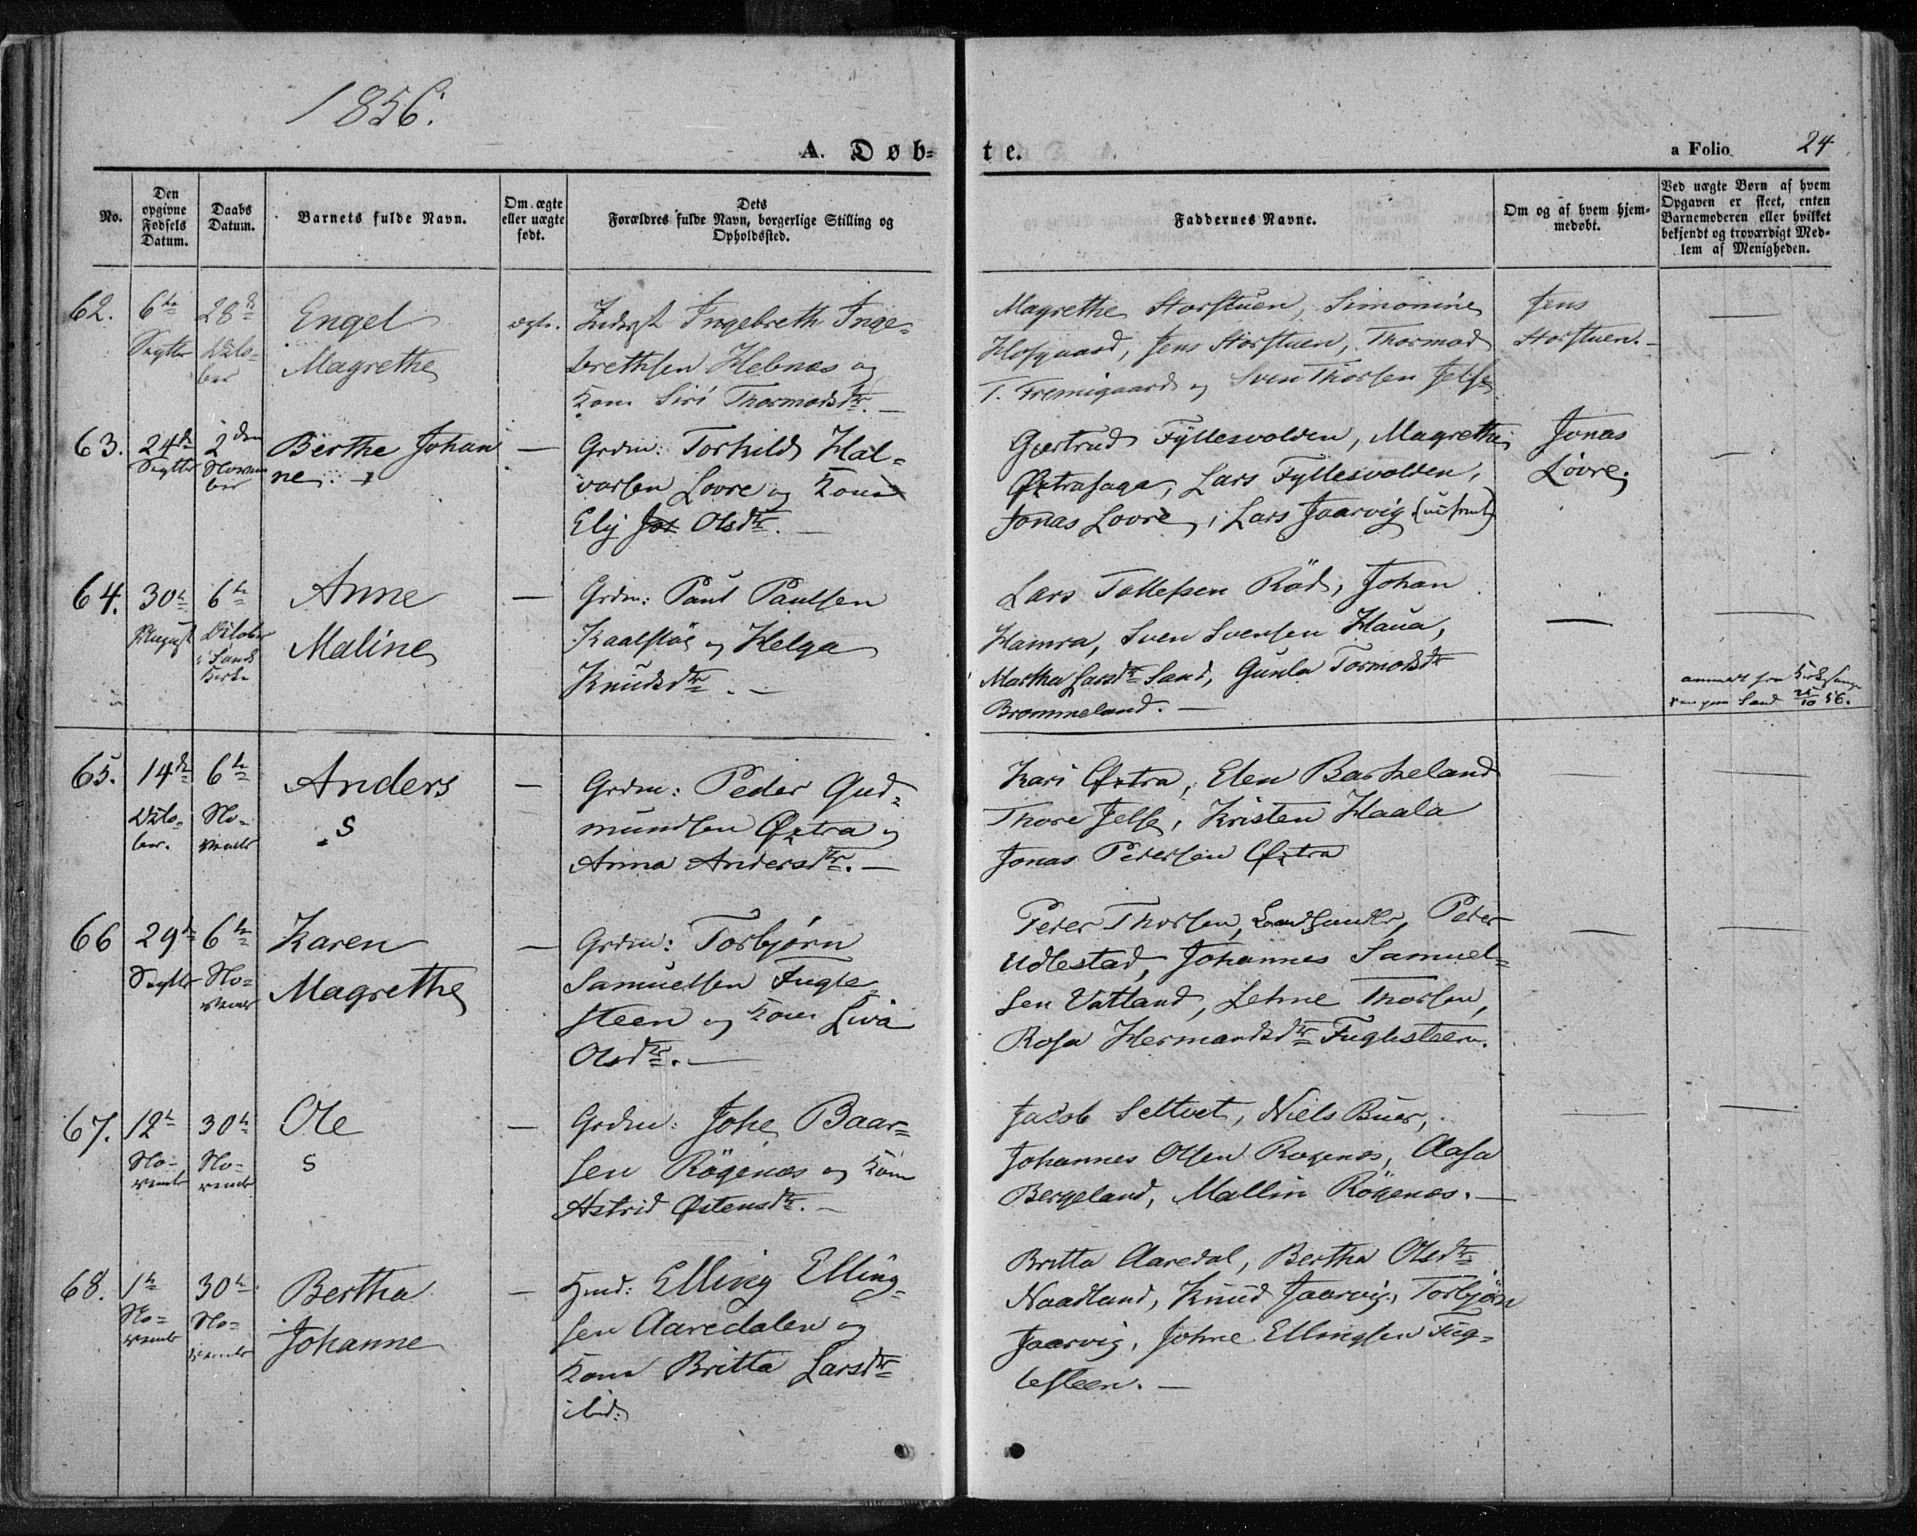 1856.
A. Døb-
te.
a Folio 24
No.
Den
opgivne
Fødsels
Datum.
Daabs
Datum.
Barnets fulde Navn.
Om ægte
eller uægte
født.
Dets
Forældres fulde Navn, borgerlige Stilling og
Opholdssted.
Faddernes Navne.
Om og af hvem hjem-
medøbt.
Ved uægte Børn af hvem
Opgaven er skeet, enten
Barnemoderen eller hvilket
bekjendt og troværdigt Med-
lem af Menigheden.
62.
6te
Septbr
28de
Octo-
ber
Engel
Magrethe
ægte.
Inderst Ingebreth Inge-
brethsen Hebnæs og
Kone Siri Thormodsdtr. —
Magrethe Storstuen, Simonine
Hofgaard, Jens Storstuen, Thormod
T. Fremigaard og Sven Thorsen Jelse
Jens
Storstuen. —
—
63.
24de
Septbr
2den
Novem
ber
Berthe Johan
ne.
—
Grdm: Torkild Hal-
vorsen Lovre og Kone
Elij Joh Olsdtr. —
Gjertrud Fyllesvolden, Magrethe
Øxtrasaga, Lars Fyllesvolden,
Jonas Lovre, Lars Jaarvig
Jonas
Løvre.
—
64.
30te
August
6te
October
i Sands
Kirke
Anne
Maline
—
Grdm: Paul Paulsen
Kaalstøe og Helga
Knudsdtr. —
Lars Tollefsen Röd, Johan
Hamra, Sven Svensen Haua,
Martha Larsdtr Sand, Gunla Tormodsdtr
Brommeland. —
—
—
anmeldt fra Kirkesange
ren paa Sand 21/10 56.
65.
14de
Octo-
ber.
6te
No-
vembr
Anders
S
—
Grdm: Peder Gud-
mundsen Øxtra og
Anna Andersdtr. —
Kari Øxtra, Elen Barkeland
Thore Jelse, Kristen Haala
Jonas Pedersen Øxtra
—
—
66
29de
Septbr
6te
No-
vembr
Karen
Magrethe
—
Grdm: Torbjørn
Samuelsen Fugle-
steen og Kone Liva
Olsdtr. —
Peder Thorsen, Landhandler, Peder
Udlestad, Johannes Samuel-
sen Vatland, Lehne Thorsen,
Rosa Hermandsdtr Fuglesteen.
—
—
67.
12te
No-
vembr
30te
No-
vembr
Ole
S
—
Grdm: Johe Baar-
sen Rögenæs og Kone
Astrid Østensdtr. —
Jacob Seltvet, Niels Buer,
Johannes Olsen Rogenæs, Aasa
Bergeland, Mallin Rögenæs. —
—
—
68.
1te
No-
vembr
30te
No-
vembr
Bertha
Johanne
—
Hmd: Elling Elling-
sen Aaredalen og
Kone Britta Larsdtr
ibid:
Britta Aaredal, Bertha Olsdtr
Naadland, Knud Jaarvig, Torbjørn
Jaarvig, Johne Ellingsen Fug-
lesteen. —